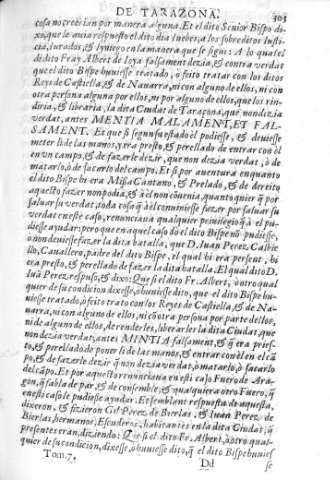 DE TARAZONA. 303
cosa no recebirian por manera alguna. Et el dito Senior Bispo di-
xo, que le avia respuesto el dito dia Iueves, a los sobreditos Iusti-
cia, Iurados, & luego en la manera que se sigue: A lo qual el
dito Fray Albert de Ioya falsament dezia, & contra verdat
que el dito Bispe huviesse tratado, ò feito tratar con los ditos
Reyes de Castiella, & de Navarra, ni con alguno de ellos, ni con
otra persona alguna por ellos, ni por alguno de ellos, que los rin-
diria, & libraria, la dita Ciudat de Taraçona, que non dizia
verdat, antes MENTIA MALAMENT, ET FAL-
SAMENT. Et que si segun su estado èl podiesse, & deviesse
meter li de las manos, yera presto, & perellado de entrar con èl
en un campo, & de fazerle dezir, que non dezia verdat, ò de
matarlo, ò de sacarlo del campo. Et si por aventura enquanto
el dito Bispe era Missa Cantano, & Prelado, & de dereito
aquesto fazer non podia, & à èl non convenia, quanto quier que por
salvar su verdat, toda cosa que à èl conviniesse fazer por salvar su
verdat en este caso, renunciava qualquier privilegio que à èl pu-
diesse ayudar: pero que en aquel caso do el dito Bispe non pudiesse,
ò non deviesse fazer la dita batalla, que D. Iuan Perez Calvie-
llo, Cavallero, padre del dito Bispe, el qual hi era present, hi
era presto, & perellado de fazer la dita batalla. Et el qual dito D.
Iuan Perez respuso, & dixo: Que si el dito Fr. Albert, ò otro qual
quier de su condicion dixesse, ò huviesse dito, que el dito Bispe hu-
viesse tratado, ò feito trato con los Reyes de Castiella, & de Na-
varra, ni con alguno de ellos, ni con otra persona por parte de ellos,
ni de alguno de ellos, de renderles, librarles la dita Ciudat, que
non dezia verdat; antes MINTIA falsament, & que era pres-
to, & perellado de poner li de las manos, & entrar con èl en el cam-
po, & de fazerle dezir que non dezia verdat, ò matarlo, ò sacarlo
del campo. Et por aquesto renunciava en esti caso Fuero de Ara-
gon, que fabla de par, & de consemble, & qualquiera otro Fuero, que
en esti caso le pudiesse ayudar. Et semblant respuesta de aquesta,
dixeron, & fizieron Gil Perez de Borlas, & Iuan Perez de
Bierlas hermanos, Escuderos, habitantes en la dita Ciudat, que
presentes eran, diziendo: Que si el dito Fr. Albert, ò otro qual-
quier de su condicion, dixesse, ò huviesse dito, que el dito Bispe huviesse
Tom. 7. Dd se